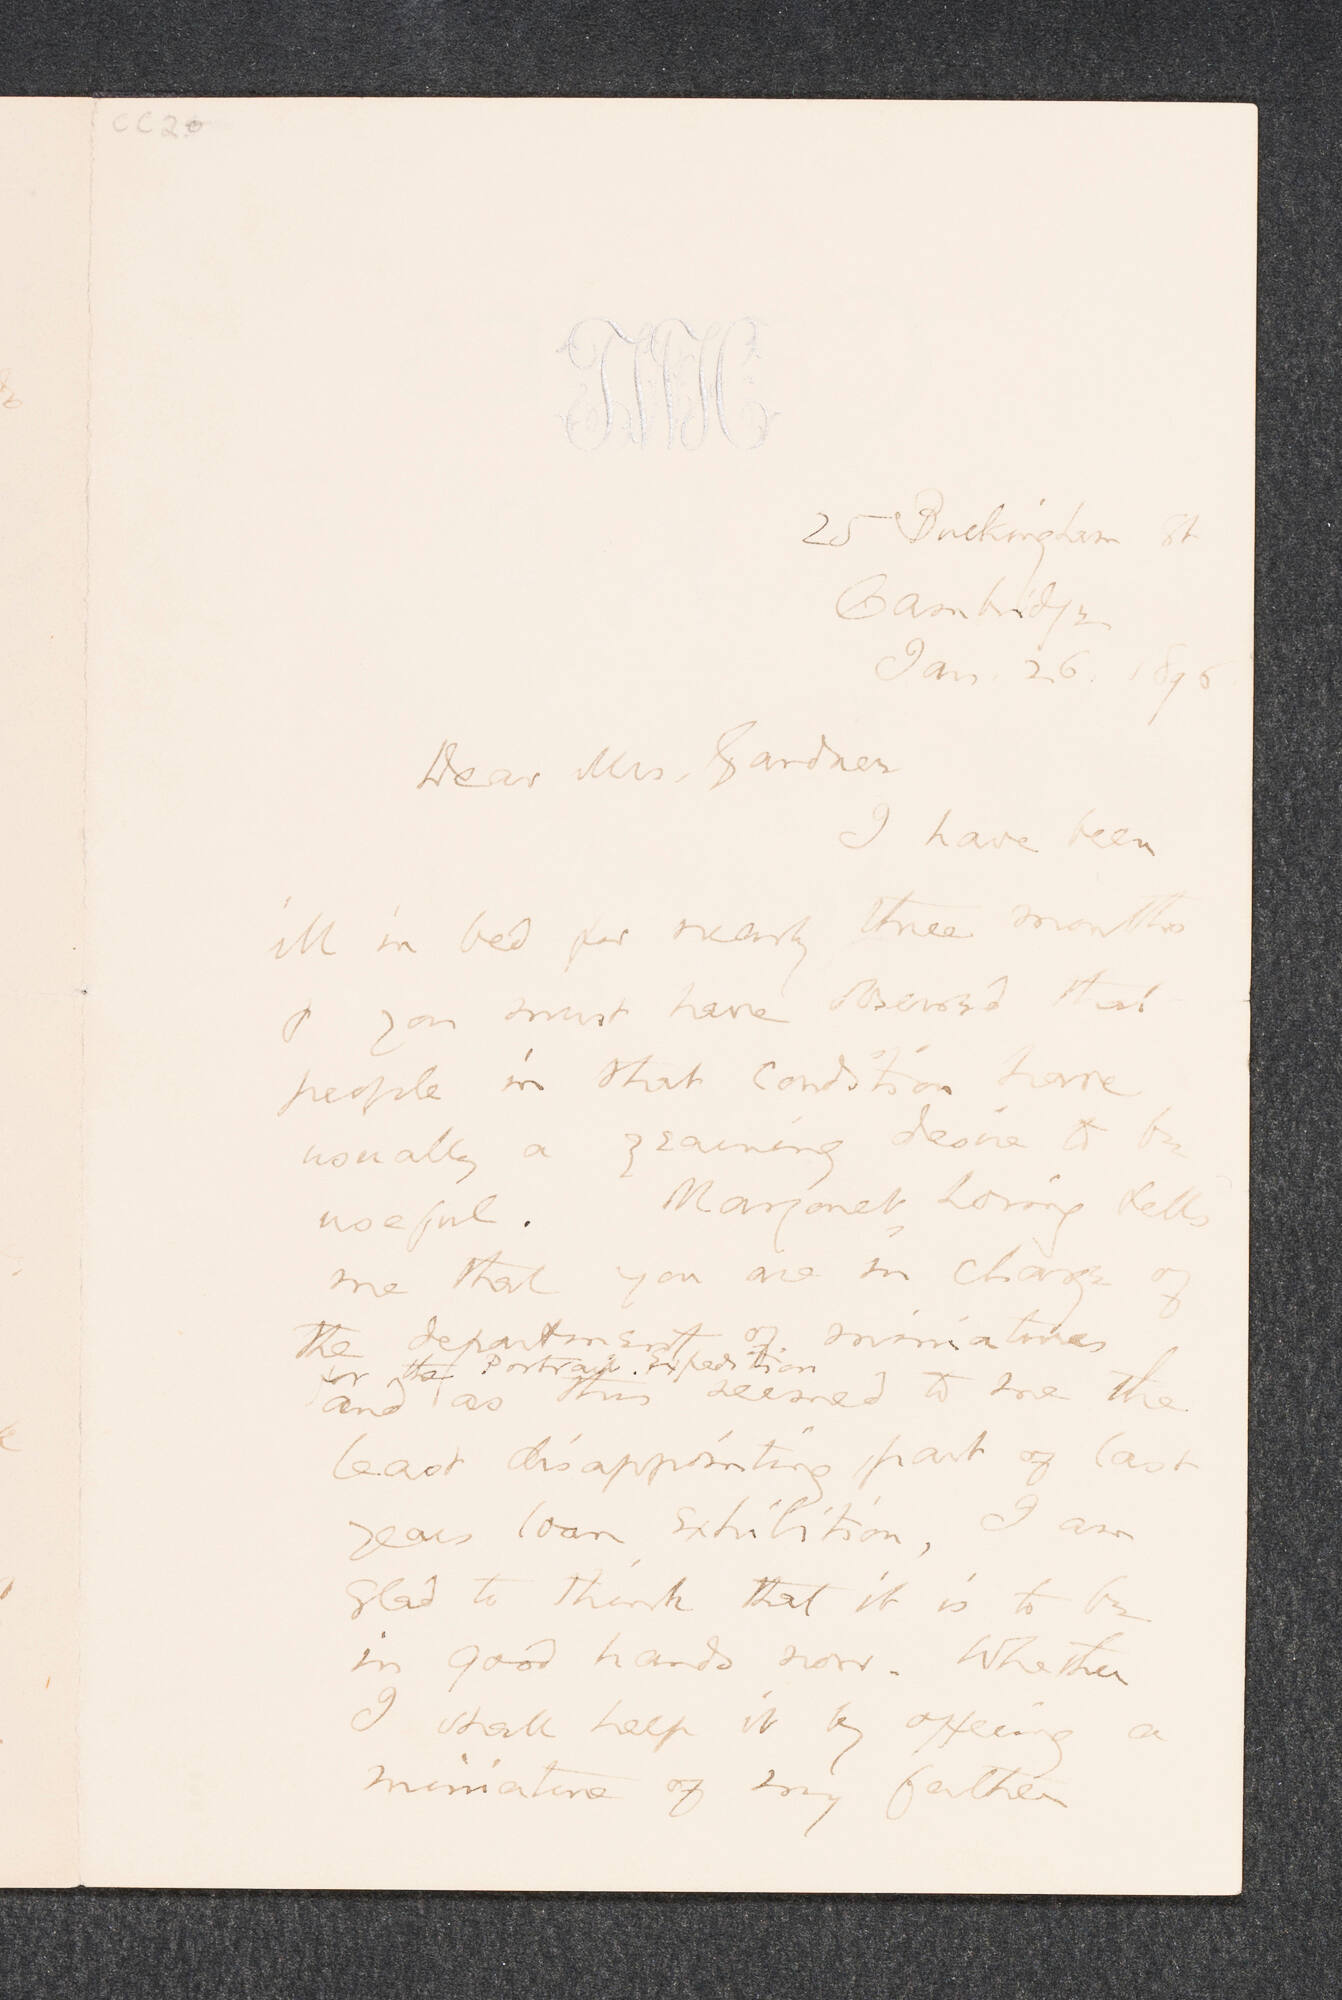 CC20
25 Buckingham St
Cambridge
Jan. 26. 1896
Dear Mrs. Gardner
I have been
ill in bed for nearly three months
& you must have observed that
people in that condition have
usually a yearning desire to be
useful. Margaret Loring tells
me that you are in charge of
the department of miniatures
for the Portrait Expedition
and as this seemed to me the
least disappointing part of last
years loan exhibition, I am
glad to think that it is to be
in good hands now. Whether
I shall help it by offering a
miniature of my father